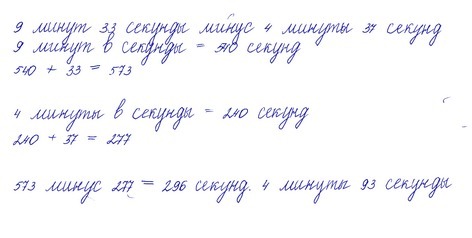 9 минут 33 секунды минус 4 минуты 37 секунд
9 минут в секунды = 540 секунд
540 + 33 = 573
4 минуты в секунды = 240 секунд
240 + 37 = 277
573 минус 277 = 296 секунд. 4 минуты 93 секунды